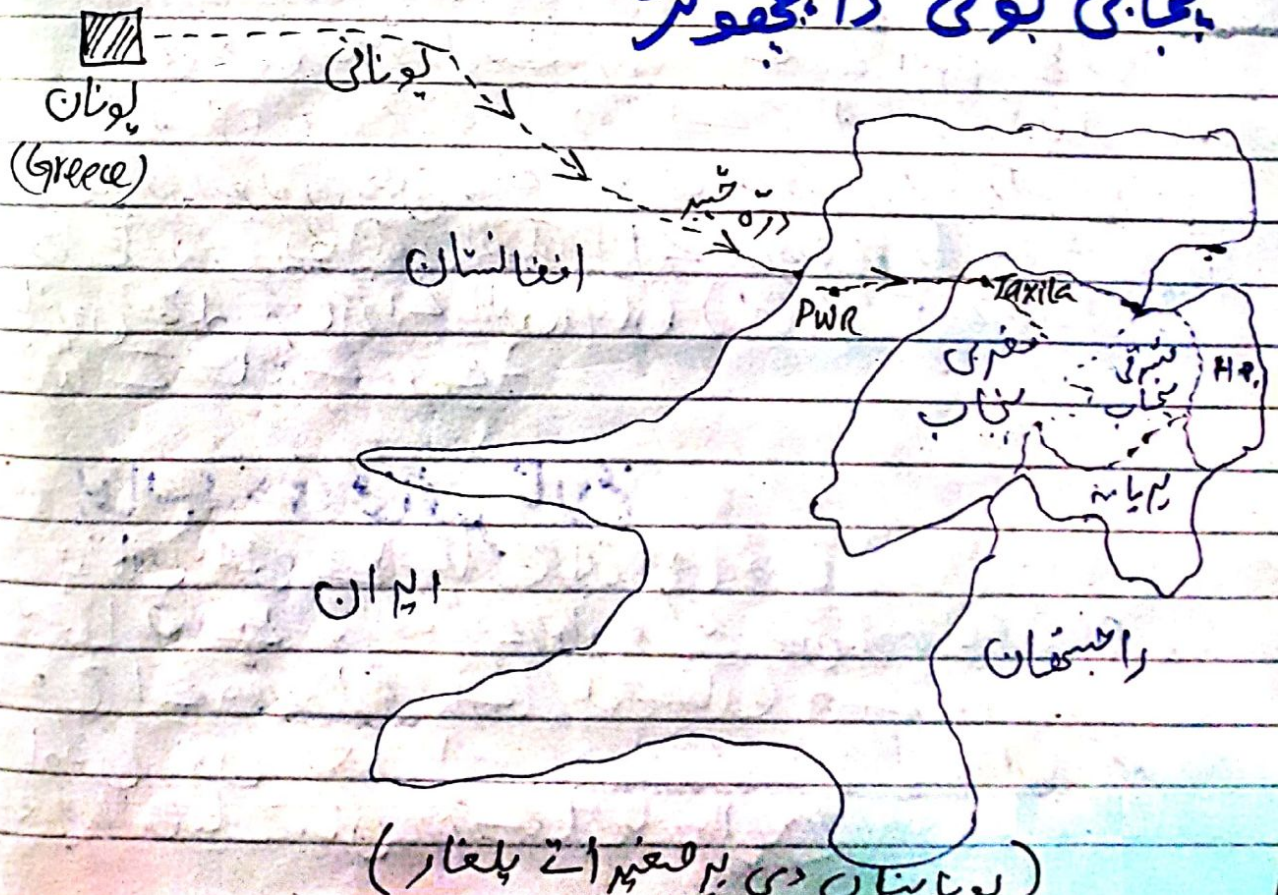 پنجابی بولی دا پچھوکڑ
یونان
(Greece)
یونانی
درّہ خیبر
افغانستان
PWR
Taxila
مغربی
پنجاب
مشرقی
پنجاب
H.P.
ہریانہ
ایران
راجستھان
(یونانیاں دی برصغیر اتے یلغار)